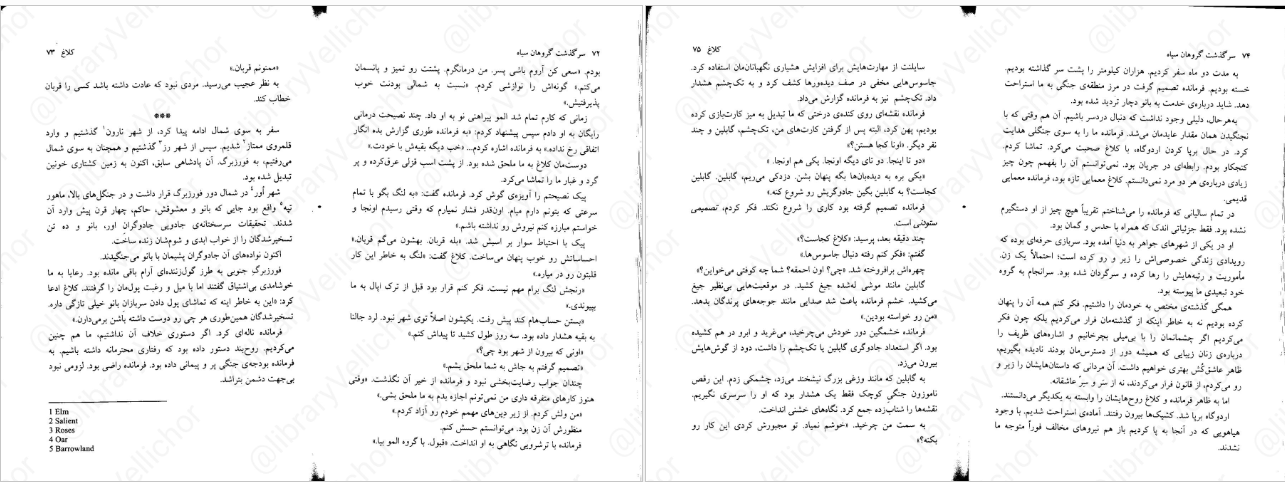 ۷۲ سرگذشت گروهان سیاه
بودم. «سعی کن آروم باشی پسر. من درمانگرم. پشتت رو تمیز و پانسمان
می‌کنم.» گونه‌اش را نوازشی کردم. «نسبت به شمالی بودنت خوب
پذیرفتیش.»
زمانی که کارم تمام شد المو پیراهنی نو به او داد. چند نصیحت درمانی
رایگان به او دادم سپس پیشنهاد کردم: «به فرمانده طوری گزارش بده انگار
اتفاقی رخ نداده.» به فرمانده اشاره کردم... «خب دیگه بقیه‌ش با خودت.»
دوست‌مان کلاغ به ما ملحق شده بود. از پشت اسب قزلی عرق‌کرده و پر
گرد و غبار ما را تماشا می‌کرد.
پیک نصیحتم را آویزه‌ی گوش کرد. فرمانده گفت: «به لنگ بگو با تمام
سرعتی که بتونم دارم میام. اون‌قدر فشار نمیارم که وقتی رسیدم اونجا و
خواستم مبارزه کنم نیروش رو نداشته باشم.»
پیک با احتیاط سوار بر اسبش شد. «بله قربان. بهشون می‌گم قربان.»
احساساتش رو خوب پنهان می‌ساخت. کلاغ گفت: «لنگ به خاطر این کار
قلبتون رو در میاره.»
«رنجش لنگ برام مهم نیست. فکر کنم قرار بود قبل از ترک اپال به ما
بپیوندی.»
«بستن حساب‌هام کند پیش رفت. یکیشون اصلاً توی شهر نبود. لرد جالنا
به بقیه هشدار داده بود. سه روز طول کشید تا پیداش کنم.»
«اونی که بیرون از شهر بود چی؟»
«تصمیم گرفتم به جاش به شما ملحق بشم.»
چندان جواب رضایت‌بخشی نبود و فرمانده از خیر آن نگذشت. «وقتی
هنوز کارهای متفرقه داری من نمی‌تونم اجازه بدم به ما ملحق بشی.»
«من ولش کردم. از زیر دین‌های مهمم خودم رو آزاد کردم.»
منظورش آن زن بود. می‌توانستم حسش کنم.
فرمانده با ترشرویی نگاهی به او انداخت. «قبول. با گروه المو بیا.»
کلاغ ۷۳
«ممنونم قربان.»
به نظر عجیب می‌رسید. مردی نبود که عادت داشته باشد کسی را قربان
خطاب کند.
***
سفر به سوی شمال ادامه پیدا کرد، از شهر نارون۱ گذشتیم و وارد
قلمروی ممتاز۲ شدیم. سپس از شهر رز۳ گذشتیم و همچنان به سوی شمال
می‌رفتیم، به فورزبرگ. آن پادشاهی سابق، اکنون به زمین کشتاری خونین
تبدیل شده بود.
شهر اُور۴ در شمال دور فورزبرگ قرار داشت و در جنگل‌های بالا، ماهور
تپه۵ واقع بود جایی که بانو و معشوقش، حاکم، چهار قرن پیش وارد آن
شدند. تحقیقات سرسختانه‌ی جادویی جادوگران اور، بانو و ده تن
تسخیرشدگان را از خواب ابدی و شوم‌شان زنده ساخت.
اکنون نواده‌های آن جادوگران پشیمان با بانو می‌جنگیدند.
فورزبرگ جنوبی به طرز گول‌زننده‌ای آرام باقی مانده بود. رعایا به ما
خوشامدی بی‌اشتیاق گفتند اما با میل و رغبت پول‌مان را گرفتند. کلاغ ادعا
کرد: «این به خاطر اینه که تماشای پول دادن سربازان بانو خیلی تازگی داره.
تسخیرشدگان همین‌طوری هر چی رو دوست داشته باشن برمی‌دارن.»
فرمانده ناله‌ای کرد. اگر دستوری خلاف آن نداشتیم، ما هم چنین
می‌کردیم. روح‌بند دستور داده بود که رفتاری محترمانه داشته باشیم. به
فرمانده بودجه‌ی جنگی پر و پیمانی داده بود. فرمانده راضی بود. لزومی نبود
بی‌جهت دشمن بتراشد.
1 Elm
2 Salient
3 Roses
4 Oar
5 Barrowland
۷۴ سرگذشت گروهان سیاه
به مدت دو ماه سفر کردیم. هزاران کیلومتر را پشت سر گذاشته بودیم.
خسته بودیم. فرمانده تصمیم گرفت در مرز منطقه‌ی جنگی به ما استراحت
دهد. شاید درباره‌ی خدمت به بانو دچار تردید شده بود.
به‌هرحال، دلیلی وجود نداشت که دنبال دردسر باشیم. آن هم وقتی که با
نجنگیدن همان مقدار عایدمان می‌شد. فرمانده ما را به سوی جنگلی هدایت
کرد. در حال برپا کردن اردوگاه، با کلاغ صحبت می‌کرد. تماشا کردم.
کنجکاو بودم. رابطه‌ای در جریان بود. نمی‌توانستم آن را بفهمم چون چیز
زیادی درباره‌ی هر دو مرد نمی‌دانستم. کلاغ معمایی تازه بود، فرمانده معمایی
قدیمی.
در تمام سالیانی که فرمانده را می‌شناختم تقریباً هیچ چیز از او دستگیرم
نشده بود. فقط جزئیاتی اندک که همراه با حدس و گمان بود.
او در یکی از شهرهای جواهر به دنیا آمده بود. سربازی حرفه‌ای بوده که
رویدادی زندگی خصوصی‌اش را زیر و رو کرده است؛ احتمالاً یک زن.
مأموریت و رتبه‌هایش را رها کرده و سرگردان شده بود. سرانجام به گروه
خود تبعیدی ما پیوسته بود.
همگی گذشته‌ی مختص به خودمان را داشتیم. فکر کنم همه آن را پنهان
کرده بودیم نه به خاطر اینکه از گذشته‌مان فرار می‌کردیم بلکه چون فکر
می‌کردیم اگر چشمانمان را با بی‌میلی بچرخانیم و اشاره‌های ظریف را
درباره‌ی زنان زیبایی که همیشه دور از دسترس‌مان بودند نادیده بگیریم،
ظاهر عاشق‌کُش بهتری خواهیم داشت. آن مردانی که داستان‌هایشان را زیر و
رو می‌کردم، از قانون فرار می‌کردند، نه از سَر و سِرّ عاشقانه.
اما به ظاهر فرمانده و کلاغ روح‌هایشان را وابسته به یکدیگر می‌دانستند.
اردوگاه برپا شد. کشیک‌ها بیرون رفتند. آماده‌ی استراحت شدیم. با وجود
هیاهویی که در آنجا به پا کردیم باز هم نیروهای مخالف فوراً متوجه ما
نشدند.
کلاغ ۷۵
سایلنت از مهارت‌هایش برای افزایش هشیاری نگهبانان‌مان استفاده کرد.
جاسوس‌هایی مخفی در صف دیده‌ورها کشف کرد و به تک‌چشم هشدار
داد. تک‌چشم نیز به فرمانده گزارش می‌داد.
فرمانده نقشه‌ای روی کنده‌ی درختی که ما تبدیل به میز کارت‌بازی کرده
بودیم، پهن کرد، البته پس از گرفتن کارت‌های من، تک‌چشم، گابلین و چند
نفر دیگر. «اونا کجا هستن؟»
«دو تا اینجا. دو تای دیگه اونجا. یکی هم اونجا.»
«یکی بره به دیده‌بان‌ها بگه پنهان بشن. دزدکی می‌ریم، گابلین. گابلین
کجاست؟ به گابلین بگین جادوگریش رو شروع کنه.»
فرمانده تصمیم گرفته بود کاری را شروع نکند. فکر کردم، تصمیمی
ستودنی است.
چند دقیقه بعد، پرسید: «کلاغ کجاست؟»
گفتم: «فکر کنم رفته دنبال جاسوس‌ها.»
چهره‌اش برافروخته شد. «چی؟ اون احمقه؟ شما چه کوفتی می‌خواین؟»
گابلین مانند موشی له‌شده جیغ کشید. در موقعیت‌هایی بی‌نظیر جیغ
می‌کشید. خشم فرمانده باعث شد صدایی مانند جوجه‌های پرندگان بدهد.
«من رو خواسته بودین.»
فرمانده خشمگین دور خودش می‌چرخید، می‌غرید و ابرو در هم کشیده
بود. اگر استعداد جادوگری گابلین یا تک‌چشم را داشت، دود از گوش‌هایش
بیرون می‌زد.
به گابلین که مانند وزغی بزرگ نیشخند می‌زد، چشمکی زدم. این رقص
ناموزون جنگی کوچک فقط یک هشدار بود که او را سرسری نگیریم.
نقشه‌ها را شتاب‌زده جمع کرد. نگاه‌های خشنی انداخت.
به سمت من چرخید. «خوشم نمیاد. تو مجبورش کردی این کار رو
بکنه؟»
@libraryVellichor